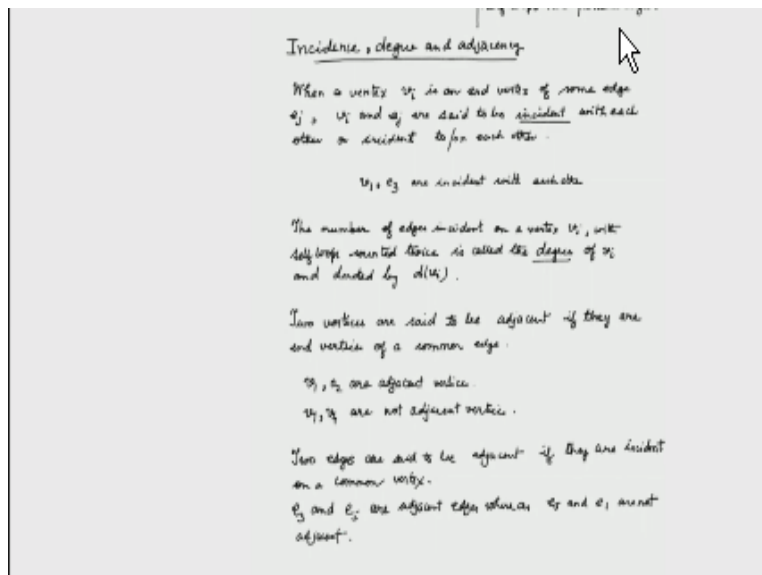 Incidence, degree and adjacency
When a vertex vi is an end vertex of some edge
ej, vi and ej are said to be incident with each
other or incident to/on each other.
v1, e3 are incident with each other
The number of edges incident on a vertex vi, with
self loop counted twice is called the degree of vi
and denoted by d(vi).
Two vertices are said to be adjacent if they are
end vertices of a common edge.
are adjacent vertice.
are not adjacent vertices.
Two edges are said to be adjacent if they are incident
on a common vertex.
e3 and are adjacent edges whereas e5 and e1 are not
adjacent.